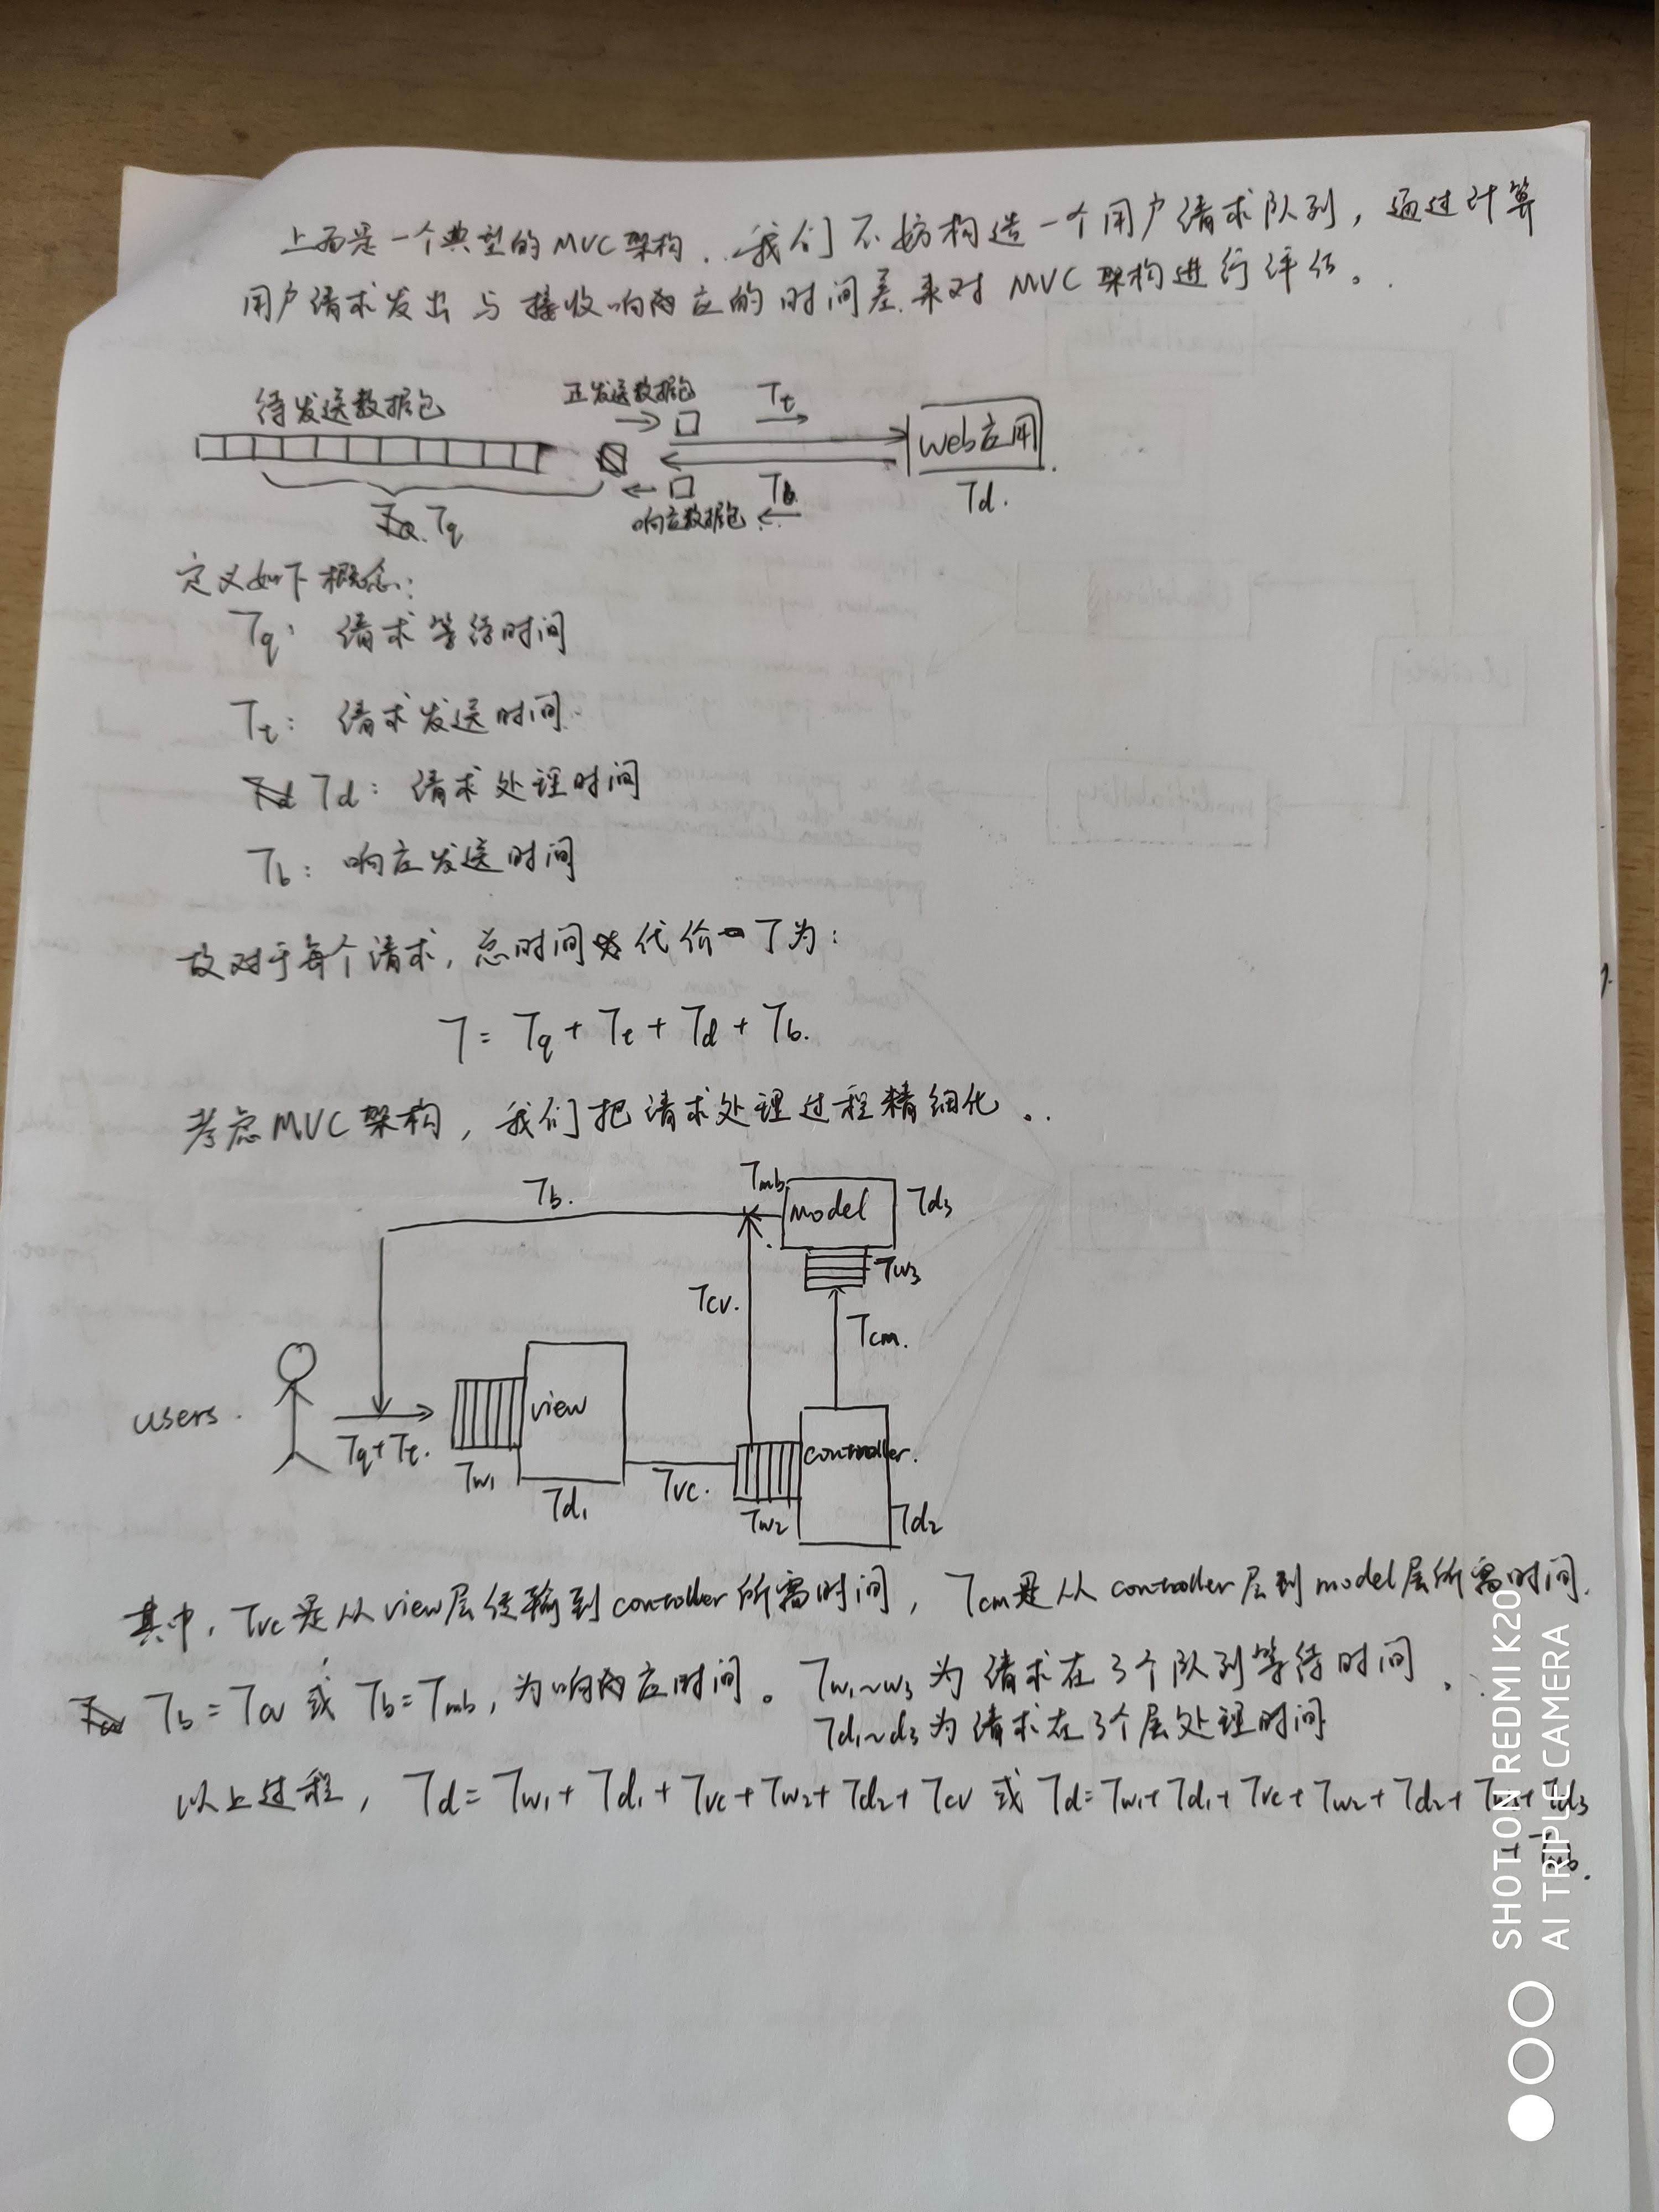 上面是一个典型的MVC架构. 我们不妨构造一个用户请求队列，通过计算
用户请求发出与接收响应的时间差来对MVC架构进行评估。
待发送数据包
正发送数据包
Tt
web应用
Tq
响应数据包
Tb
Td.
定义如下概念:
Tq: 请求等待时间
Tt: 请求发送时间.
Td: 请求处理时间
Tb: 响应发送时间
故对于每个请求, 总时间代价T为:
T= Tq + Tt + Td + Tb.
考虑MVC架构, 我们把请求处理过程精细化..
Tb.
Tmb.
model
Td3
Tw3
Tcv.
Tcm.
users.
Tq+Tt.
view
Tw1
Td1
Tvc.
controller.
Tw2
Td2
其中, Tvc是从view层传输到controller所需时间, Tcm是从controller层到model层所需时间.
Tb=Tcv 或 Tb=Tmb, 为响应时间。Tw1~w3为请求在3个队列等待时间.
Td1~d3为请求在3个层处理时间
以上过程, Td= Tw1+ Td1+ Tvc+Tw2+ Td2+ Tcv 或 Td= Tw1+ Td1+ Tvc+ Tw2+ Td2+ Tw3+ Td3
+ Tmb.
SHOT ON REDMI K20
AI TRIPLE CAMERA